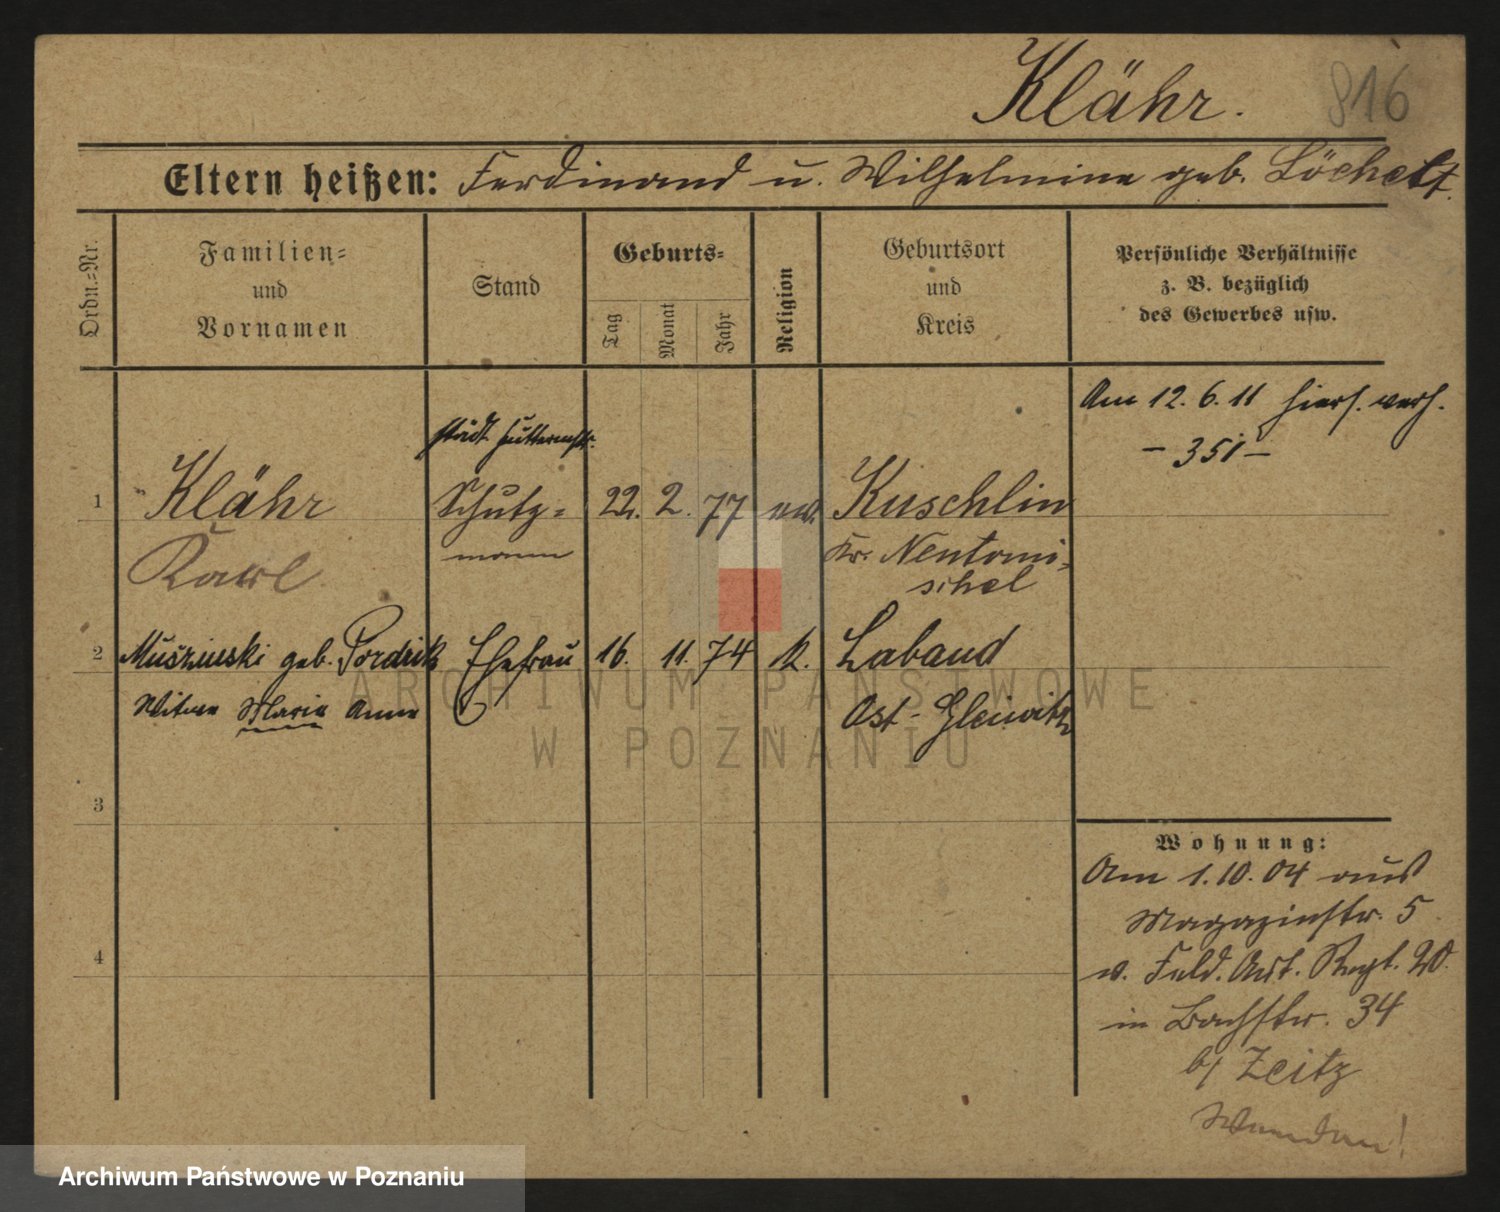 Klähr.
816
Eltern heißen: Ferdinand u. Wilhelmine geb. Löchelt.
Ordn.=Nr.
Familien=
und
Vornamen
Stand
Geburts=
Tag
Monat
Jahr
Religion
Geburtsort
und
Kreis
Persönliche Verhältnisse
z. B. bezüglich
des Gewerbes usw.
Am 12. 6. 11 hiers. verh.
- 351 -
städt.
1 Klähr Schutz= 22. 2. 77 ev. Kuschlin
mann Kr. Neutomi=
Karl schel
2 geb. Ehefrau 16. 11. 74 k. Laband
Witwe Maria Anna Ost-Gleiwitz
3
4
Wohnung:
Am 1. 10. 04 aus
Magazinstr. 5
v. Feld. Art. Regt. 20.
in Bachstr. 34
b/ Zeitz
ARCHIWUM PAŃSTWOWE
W POZNANIU
Archiwum Państwowe w Poznaniu